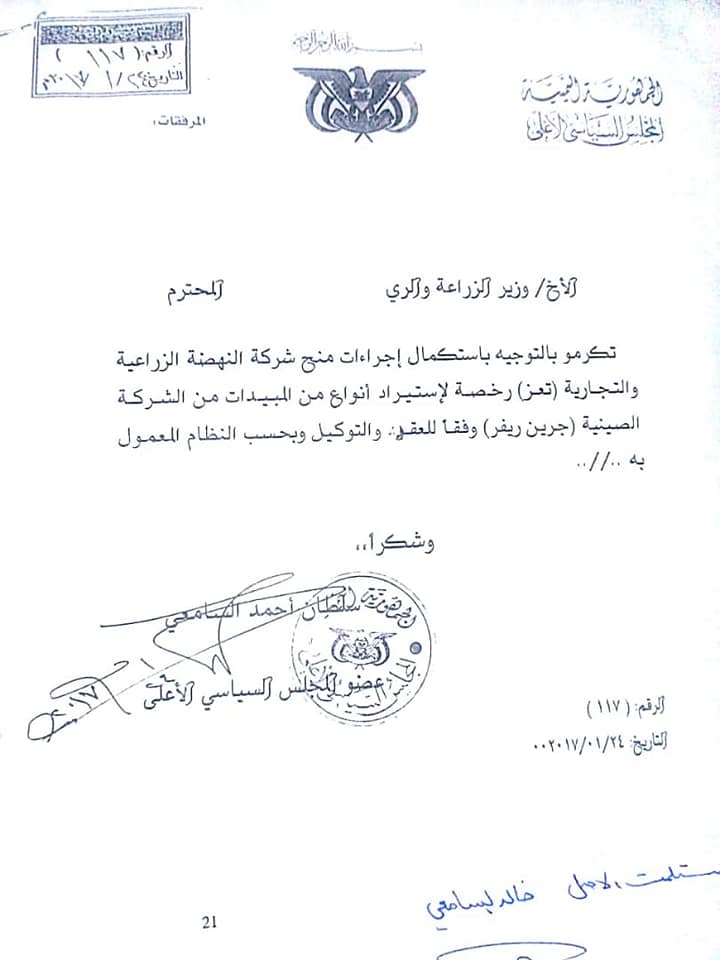 بسم الله الرحمن الرحيم
الجمهورية اليمنية
المجلس السياسي الأعلى
الرقم: (١١٧)
التاريخ ٢٤ / ١ / ٢٠١٧م
المرفقات:
الأخ/ وزير الزراعة والري المحترم
تكرمو بالتوجيه باستكمال إجراءات منح شركة النهضة الزراعية
والتجارية (تعز) رخصة لإستيراد أنواع من المبيدات من الشركة
الصينية (جرين ريفر) وفقاً للعقد. والتوكيل وبحسب النظام المعمول
به ..//..
وشكراً،،
سلطان أحمد السامعي
عضو المجلس السياسي الأعلى
٢٠١٧
الجمهورية
المجلس السياسي الأعلى
الرقم: (١١٧)
التاريخ: ٠٠٢٠١٧/٠١/٢٤
ستلمت الاصل خالد لسامعي
21